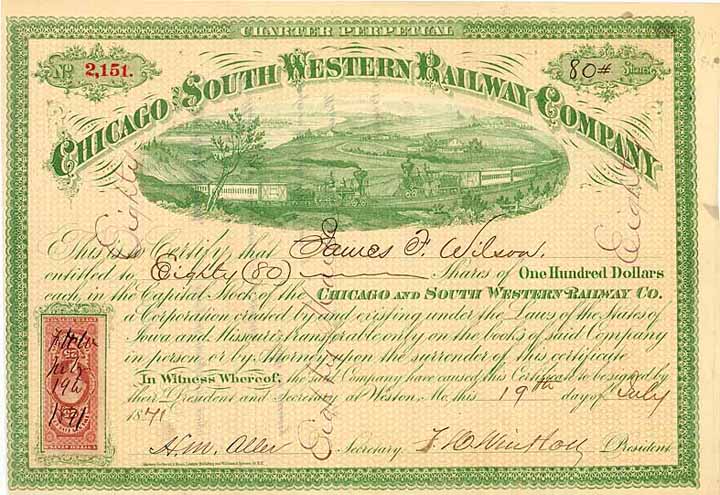 CHARTER PERPETUAL
No. 2,151.
80# Shares
CHICAGO AND SOUTH WESTERN RAILWAY COMPANY
This is to Certify that James F. Wilson.
entitled to Eighty (80) Shares of One Hundred Dollars
each in the Capital Stock of the CHICAGO AND SOUTH WESTERN RAILWAY CO.
a Corporation created by and existing under the Laws of the States of
Iowa and Missouri transferable only on the books of said Company
in person or by Attorney upon the surrender of this certificate
In Witness Whereof, the said Company have caused this Certificate to be signed by
their President and Secretary at Weston, Mo. this 19th day of July
1871
H. M. Aller Secretary. F. H. Winston President
Eighty
Eighty
Eighty
July
19th
1871
25